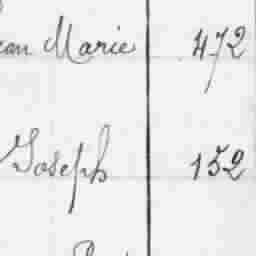 Marie 472
Joseph 152